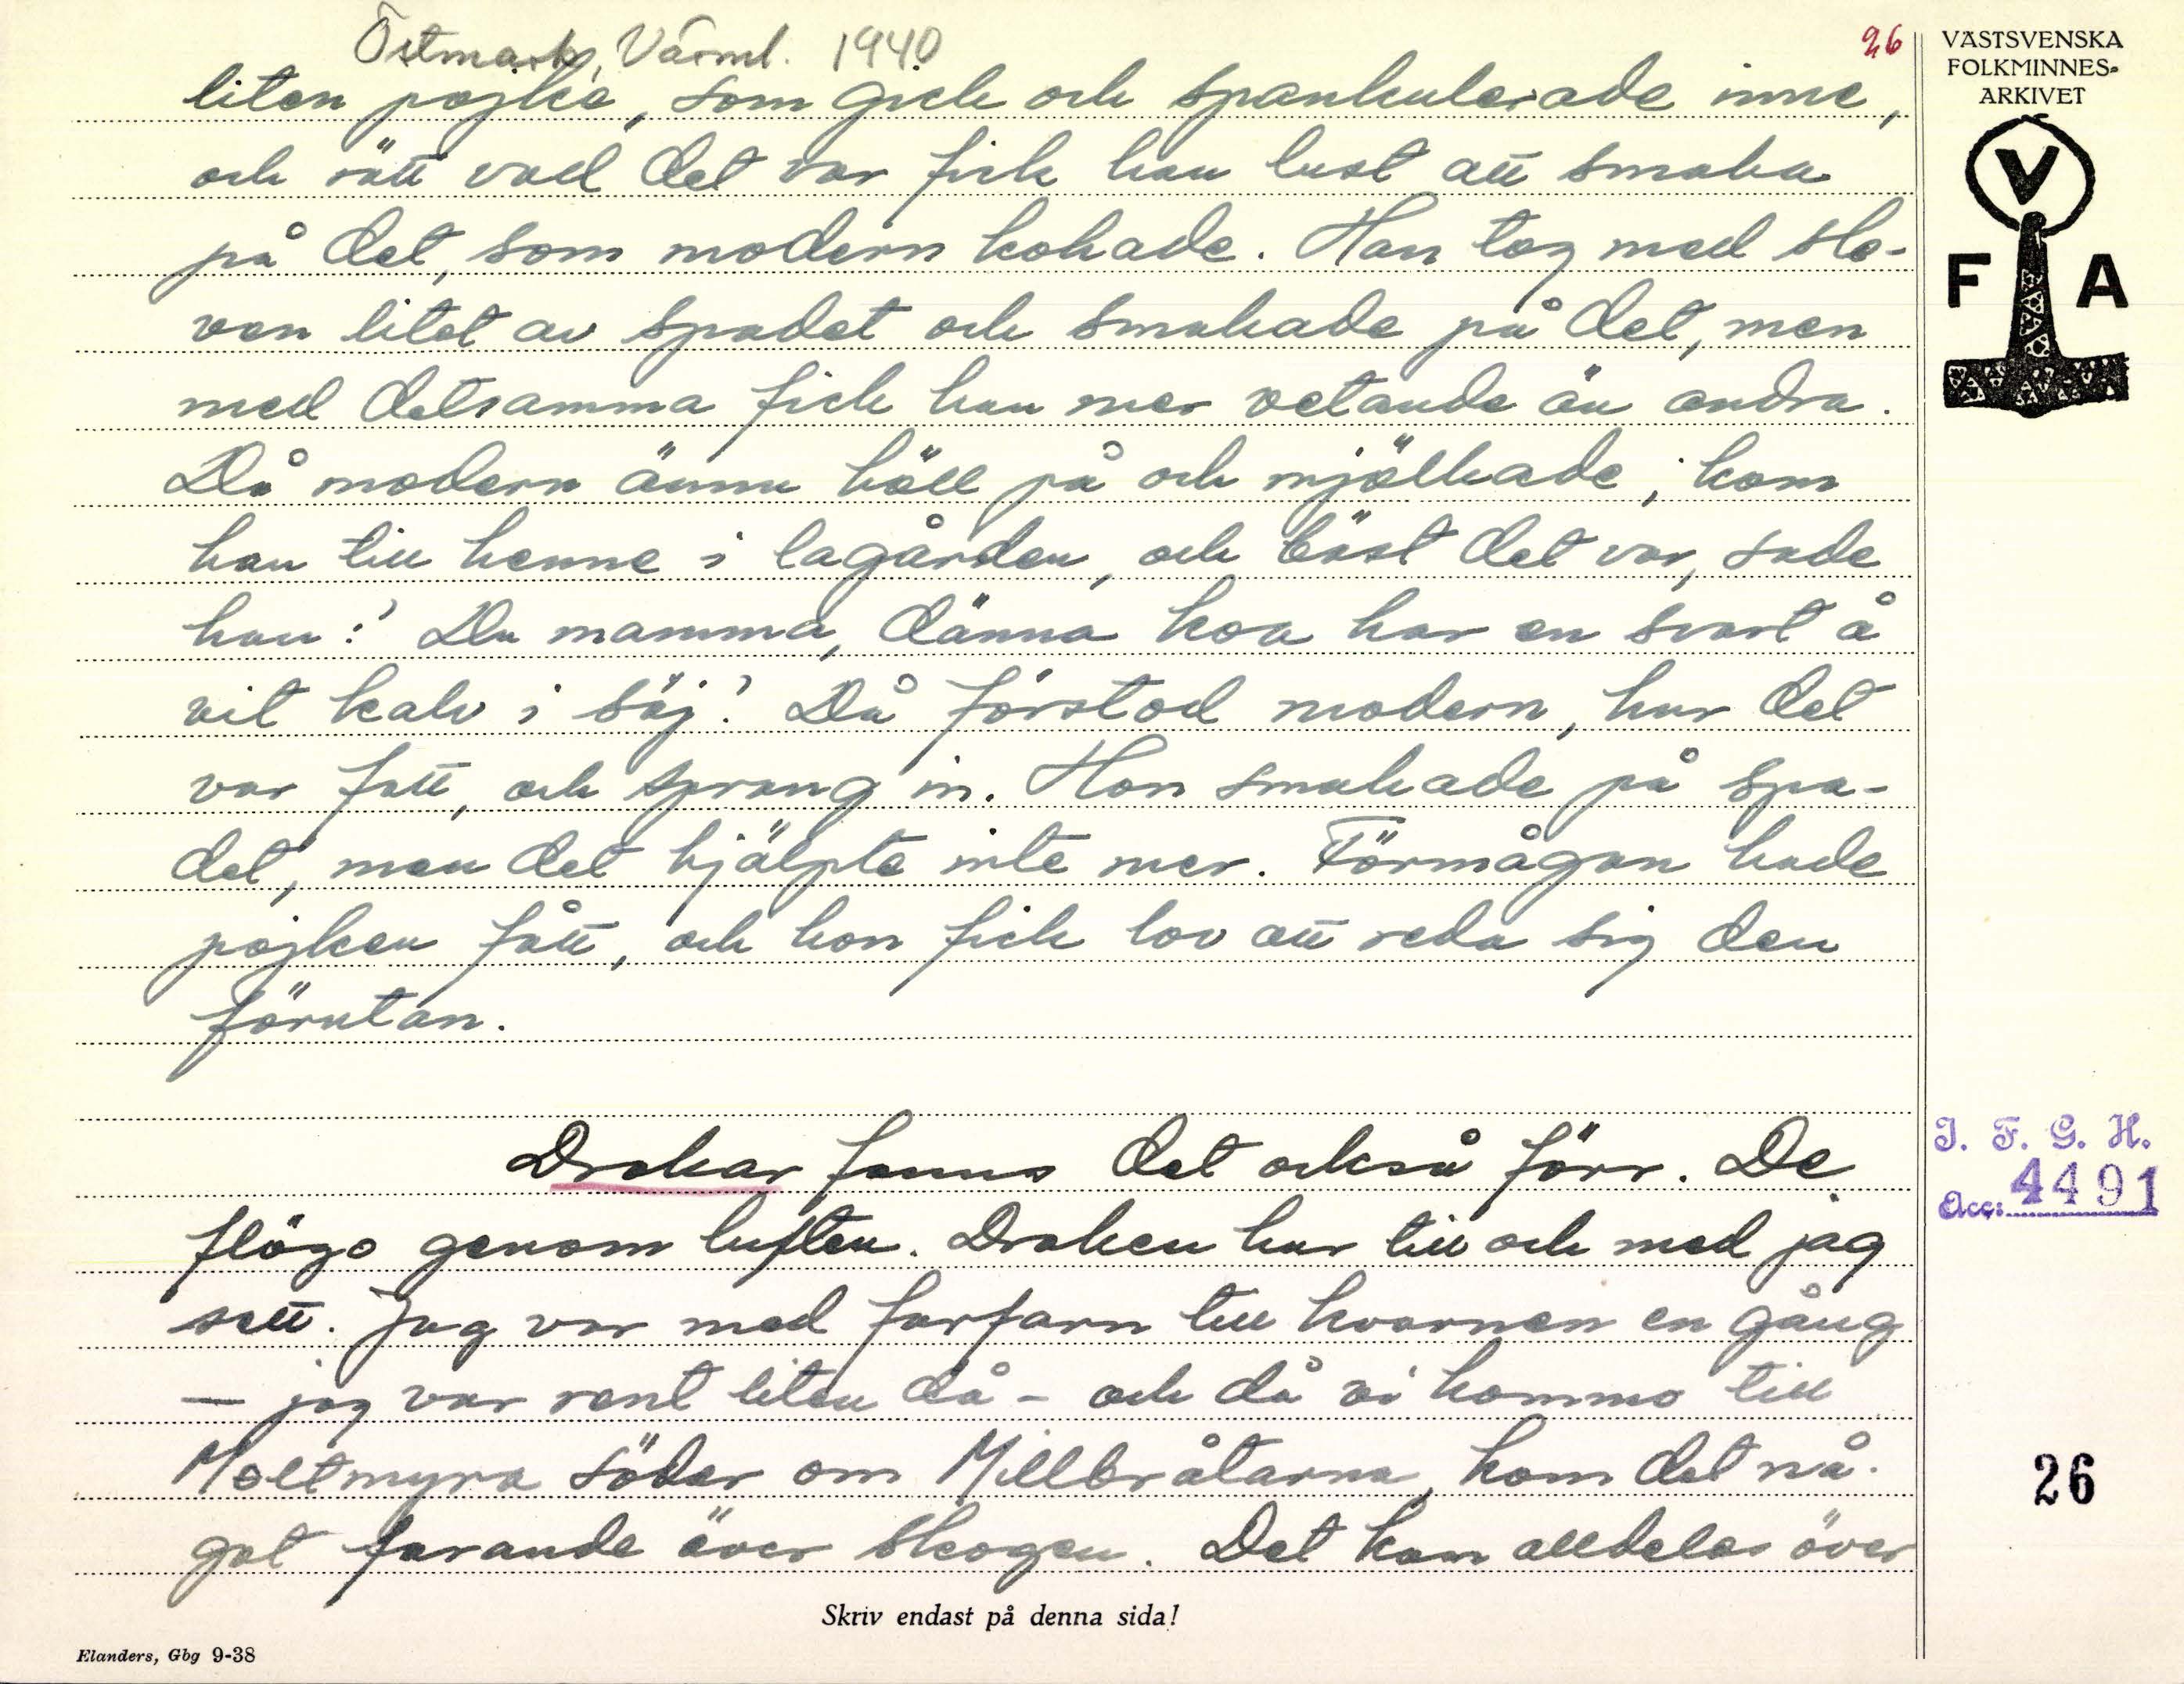 Östmark, Värml. 1940
26
liten pojke, som gick och spankulerade inne,
och rätt vad det var fick han lust att smaka
på det, som modern kokade. Han tog med sle-
ven litet av spadet och smakade på det, men
med detsamma fick han mer vetande än andra.
Då modern ännu höll på och mjölkade, kom
han till henne i lagården, och bäst det var, sade
han: 'Du mamma, dänna koa har en svart å
vit kalv i säj.' Då förstod modern, hur det
var fatt, och sprang in. Hon smakade på spa-
det, men det hjälpte inte mer. Förmågan hade
pojken fått, och hon fick lov att reda sig den
förutan.
Drakar fanns det också förr. De
flögo genom luften. Draken har till och med jag
sett. Jag var med farfarn till kvarnen en gång
— jag var rent liten då - och då vi kommo till
Moltmyra söder om Millbråtarna, kom det nå-
got farande över skogen. Det kom alldeles över
Skriv endast på denna sida!
Elanders, Gbg 9-38
VÄSTSVENSKA
FOLKMINNES-
ARKIVET
V
F A
I. F. G. H.
Acc: 4491
26